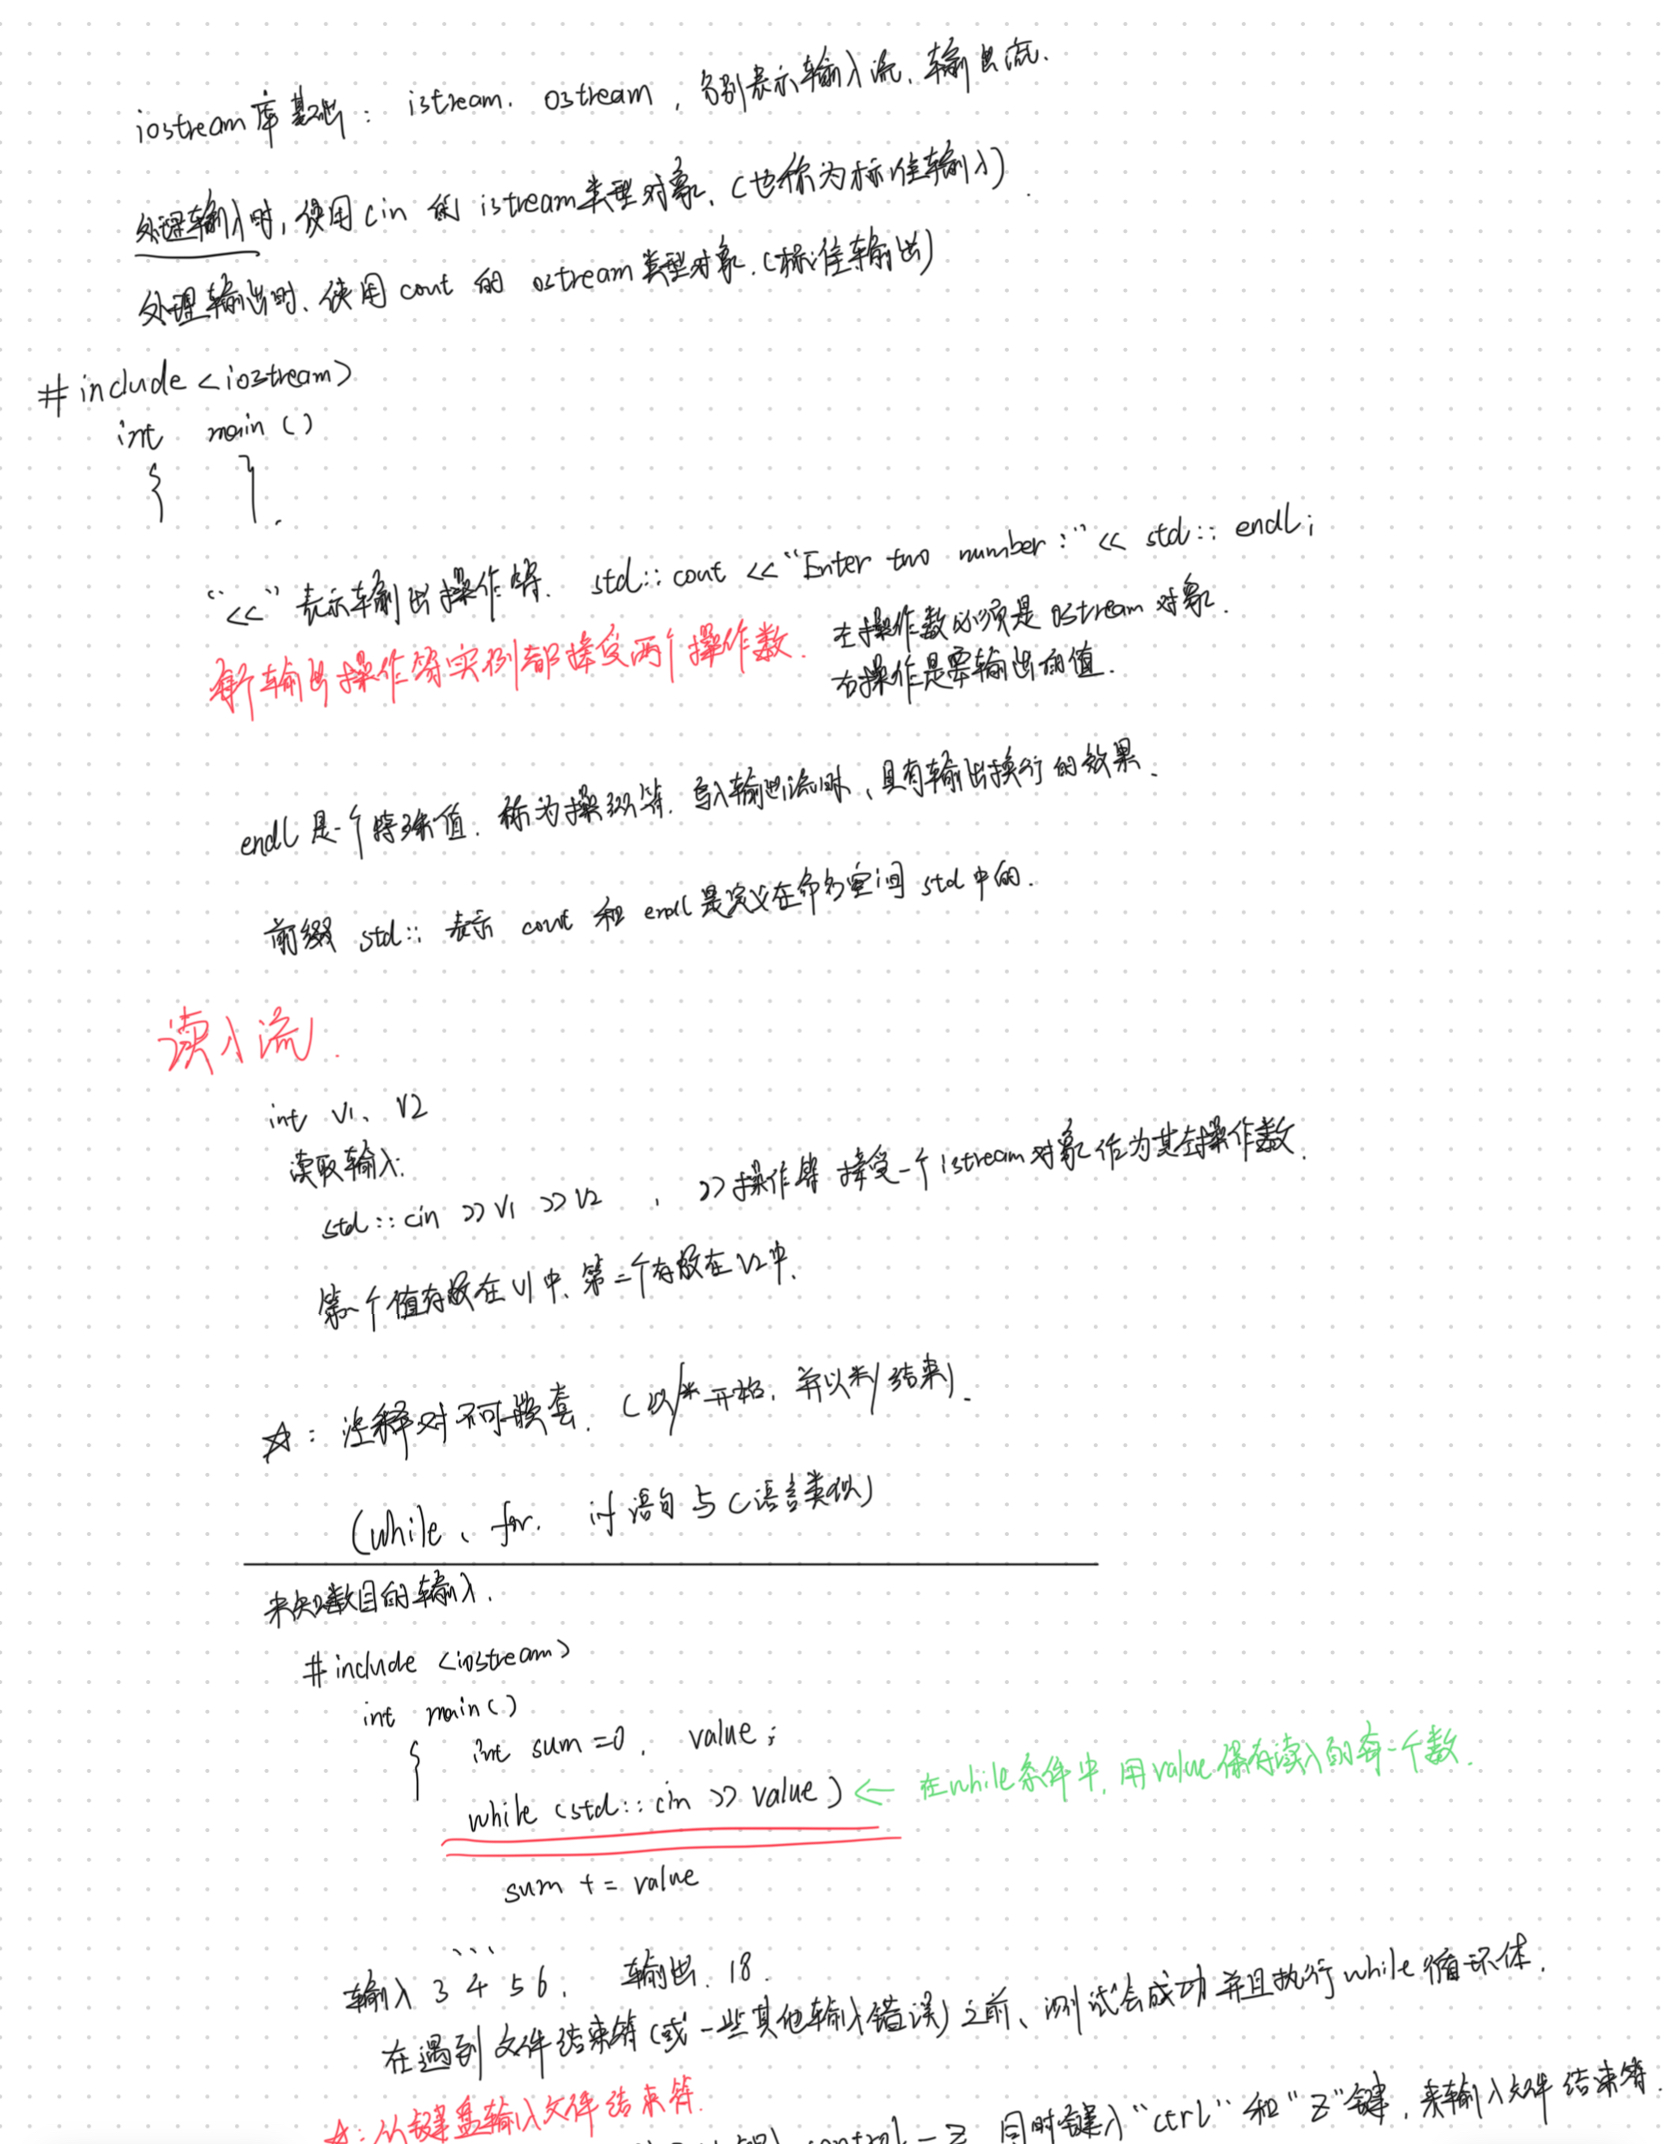 iostream库基础： istream、ostream，分别表示输入流、输出流.
处理输入时，使用cin 的 istream类型对象.（也称为标准输入）.
处理输出时、使用cout 的 ostream类型对象.（标准输出）
#include <iostream>
int main ()
{ }.
“<<”表示输出操作符. std::cout <<“Enter two number:”<< std:: endl;
每个输出操作符实例都接受两个操作数. 左操作数必须是 ostream 对象.
右操作是要输出的值.
endl 是一个特殊值. 称为操纵符. 写入输出流时、具有输出换行的效果、
前缀 std:: 表示 cout 和 endl是定义在命名空间 std 中的.
读入流.
int v1、v2
读取输入:
std::cin >>v1 >>v2 ， >>操作符 接受一个istream对象作为其左操作数.
第一个值存放在v1中、第二个存放在v2中.
☆：注释对不可嵌套. （以/*开始，并以*/结束）.
(while、for. if语句与C语言类似)
未知数目的输入.
#include <iostream>
int main()
{ int sum =0, value;
while (std::cin >> value) ← 在while条件中，用value保存读入的每一个数.
sum += value
...
输入 3 4 5 6, 输出. 18.
在遇到文件结束符（或一些其他输入错误）之前、测试会成功并且执行while循环体.
☆：从键盘输入文件结束符.
control-Z 同时键入“ctrl”和“Z”键，来输入文件结束符.